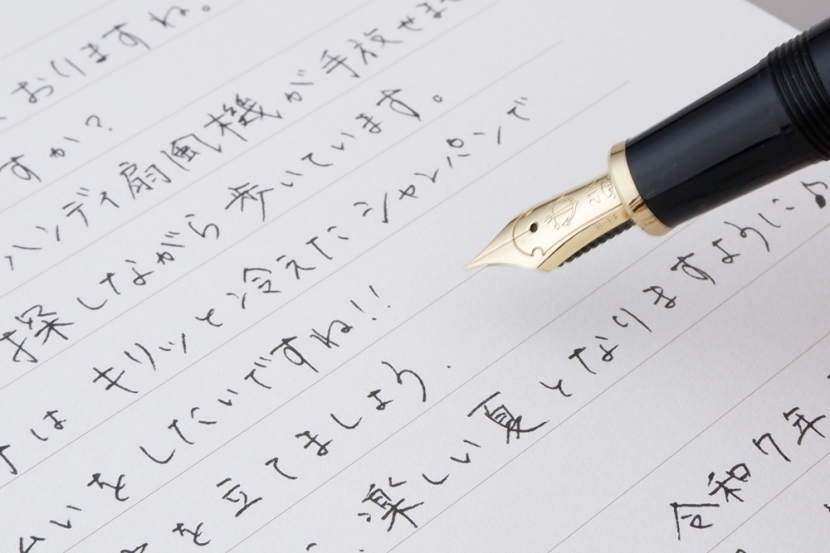 おりますね。
すか？
ハンディ扇風機が手放せま
探しながら歩いています。
は キリッと冷えたシャンパンで
いをしたいですね!!
を立てましょう.
楽しい夏となりますように♪
令和7年
21